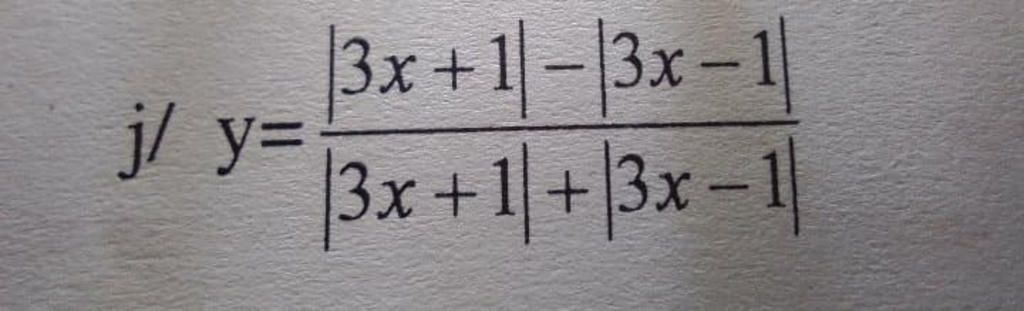 j/ y= |3x+1|−|3x−1|
|3x+1|+|3x−1|